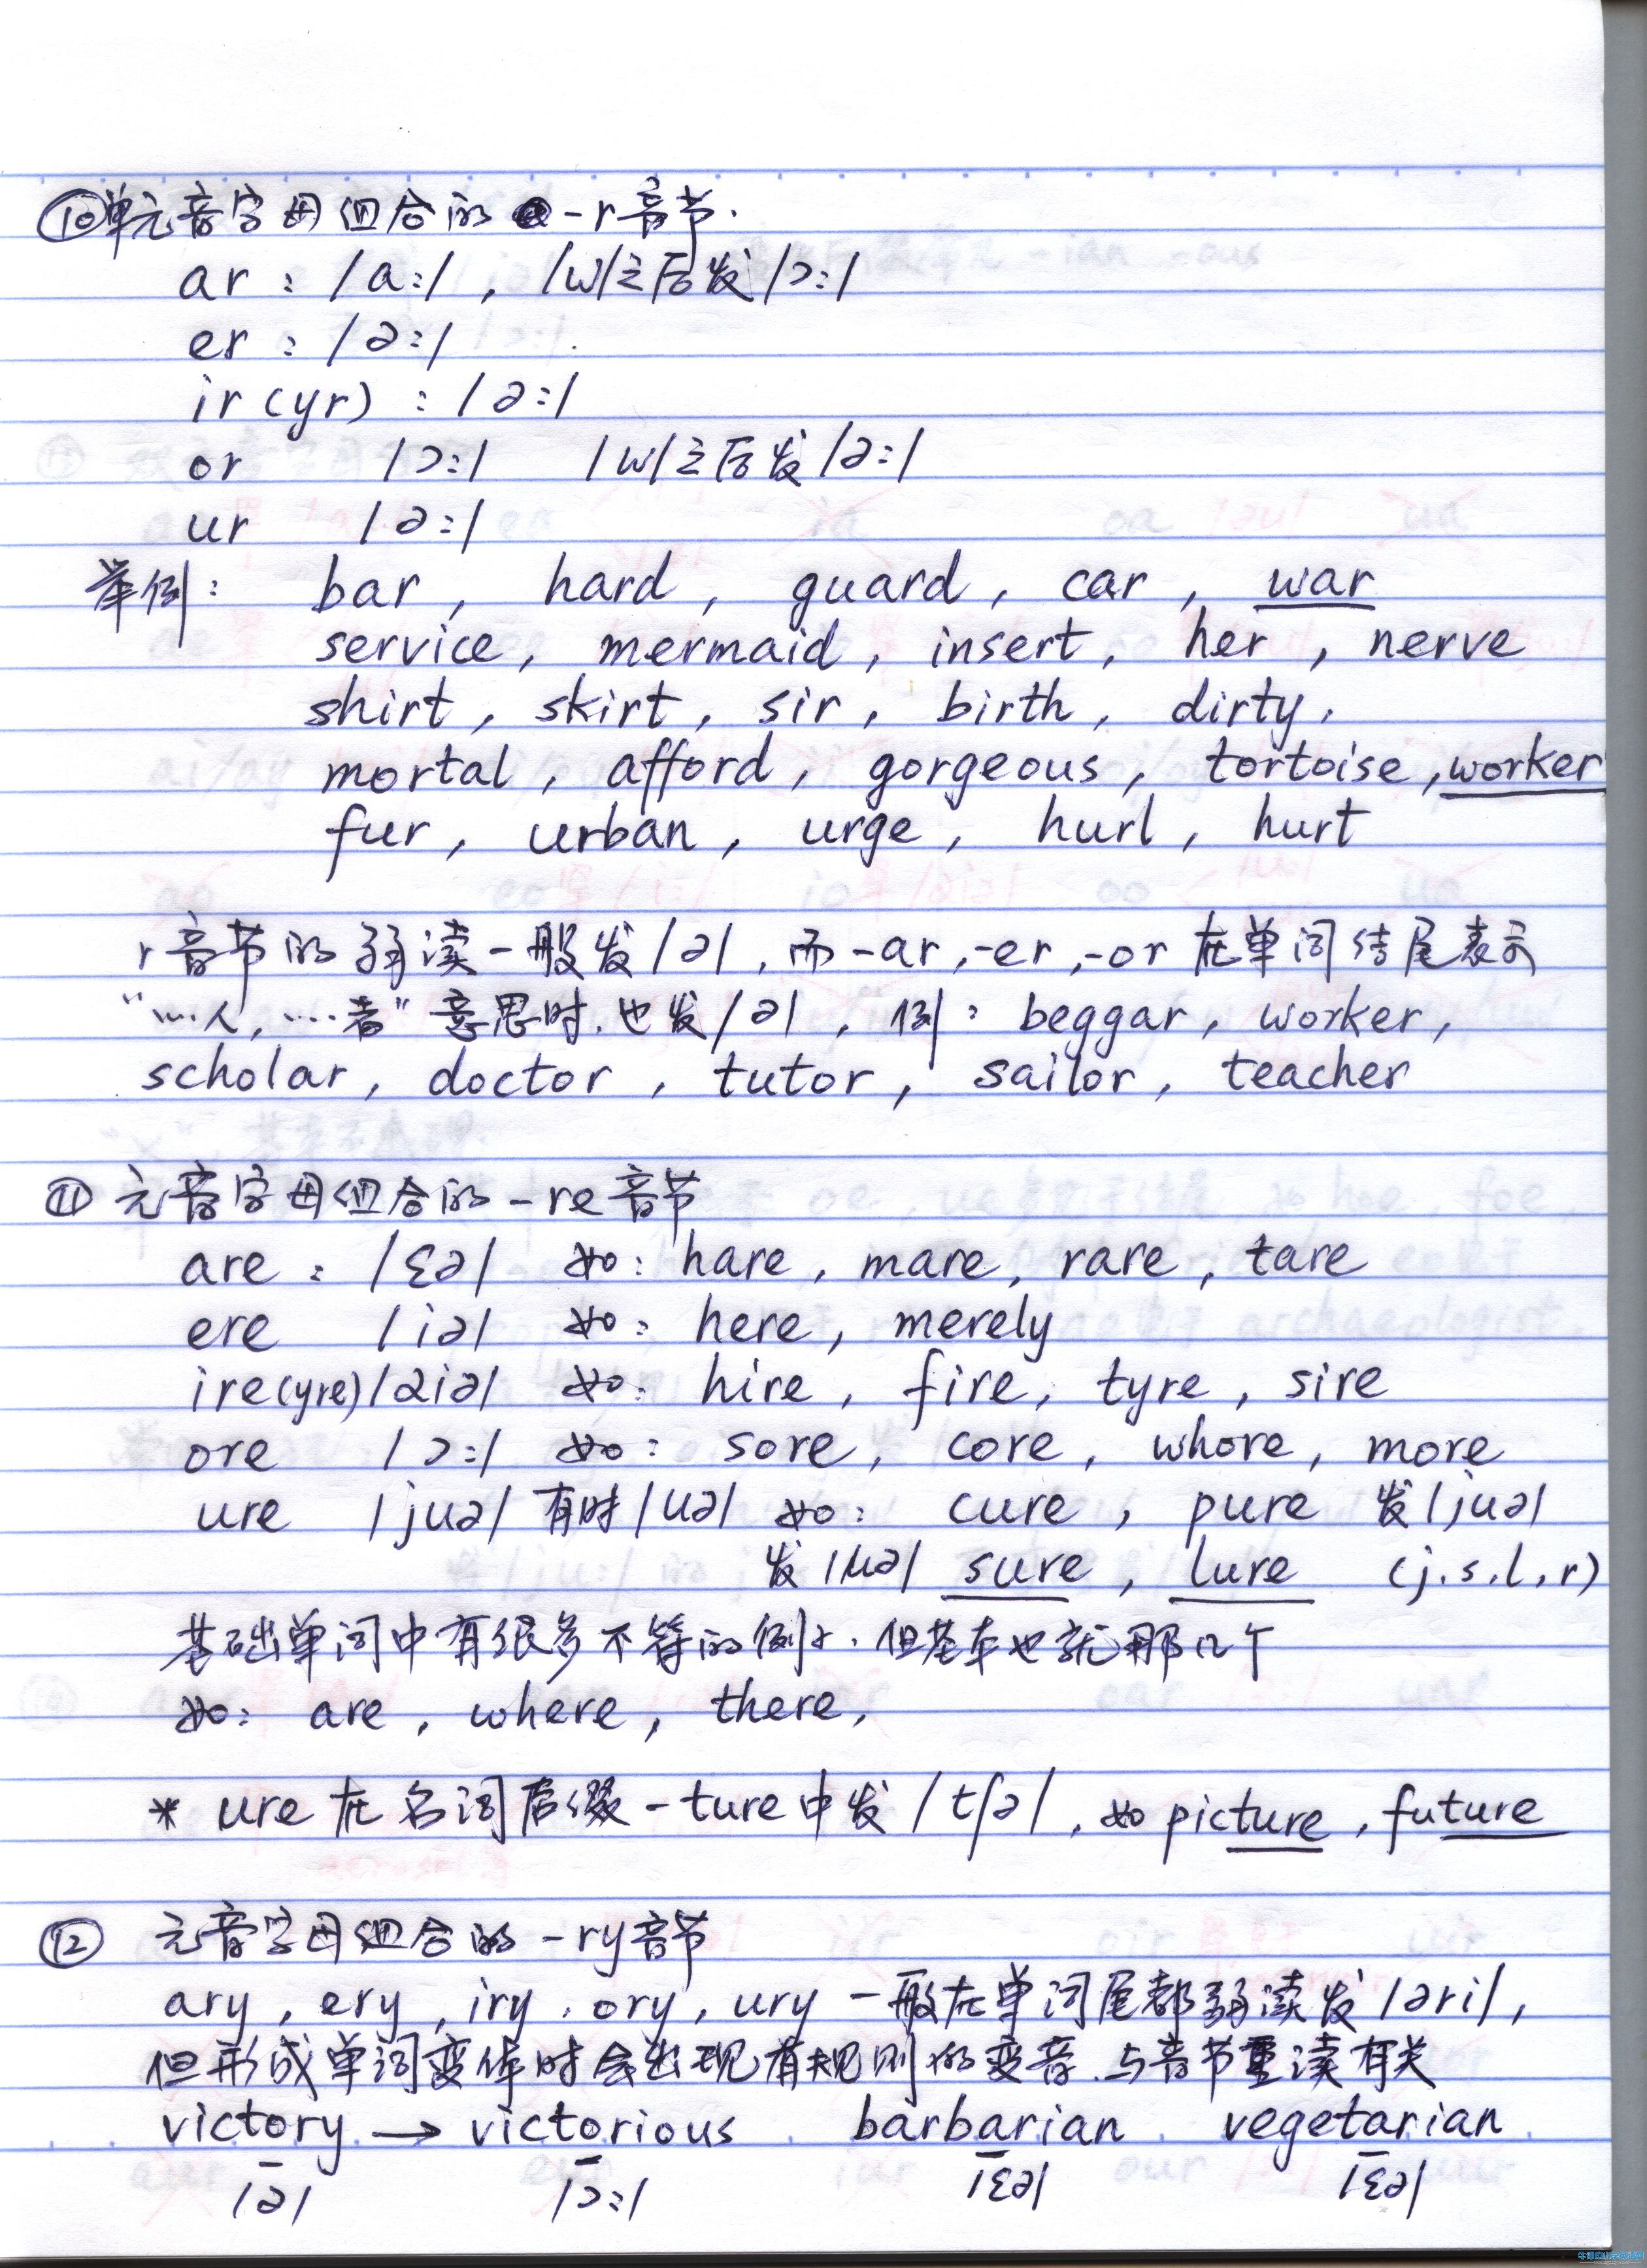 ⑩单元音字母组合的 -r音节.
ar : /a:/ , /w/之后发/ɔ:/
er : /ə:/
ir (yr) : /ə:/
or /ɔ:/ /w/之后发/ə:/
ur /ə:/
举例: bar , hard , guard , car , war
service , mermaid , insert , her , nerve
shirt , skirt , sir , birth , dirty ,
mortal , afford , gorgeous , tortoise , worker
fur , urban , urge , hurl , hurt
r音节的弱读一般发/ə/ , 而 -ar , -er , -or 在单词结尾表示
"…人, …者" 意思时, 也发/ə/ , 例: beggar , worker ,
scholar , doctor , tutor , sailor , teacher
⑪ 元音字母组合的 -re音节
are : /ɛə/ 如: hare , mare , rare , tare
ere /iə/ 如: here , merely
ire(yre) /aiə/ 如: hire , fire , tyre , sire
ore /ɔ:/ 如: sore , core , whore , more
ure /juə/ 有时/uə/ 如: cure , pure 发/juə/
发/uə/ sure , lure (j.s.l.r)
基础单词中有很多不符的例子. 但基本也就那几个
如: are , where , there ,
* ure 在名词后缀 -ture中发/tʃə/ , 如 picture , future
⑫ 元音字母组合的 -ry音节
ary , ery , iry , ory , ury 一般在单词尾都弱读发/əri/ ,
但形成单词变体时会出现有规则的变音, 与音节重读有关
victory → victorious barbarian vegetarian
/ə/ /ɔ:/ /ɛə/ /ɛə/